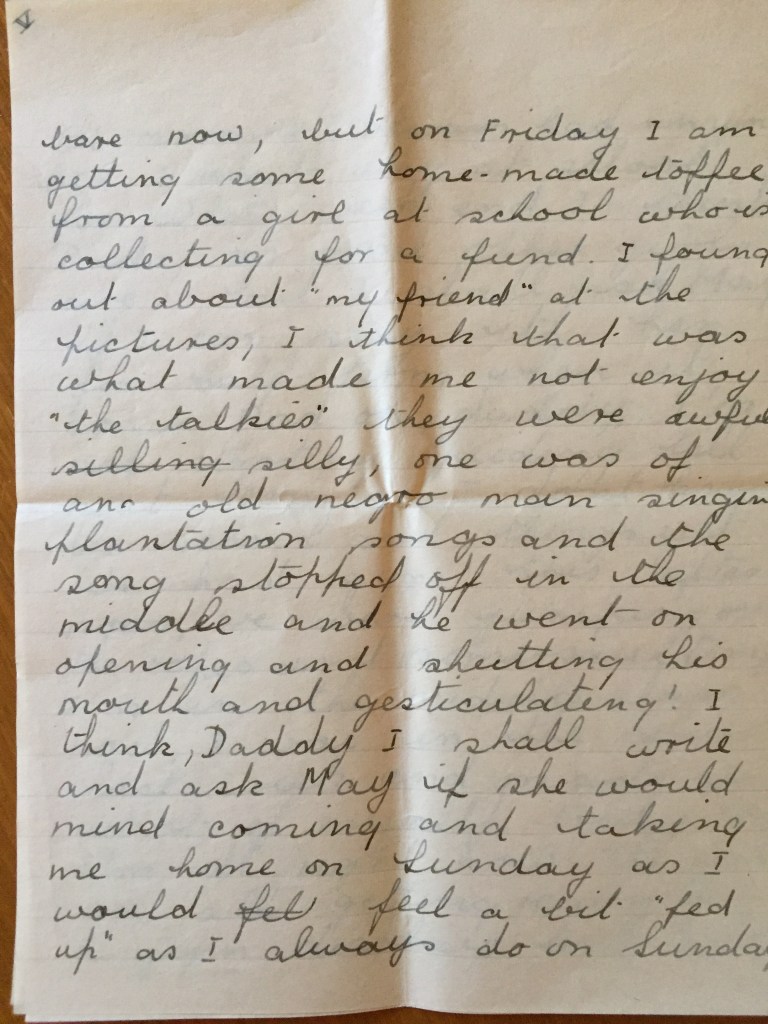 V
bare now, but on Friday I am
getting some home-made toffee
from a girl at school who is
collecting for a fund. I found
out about "my friend" at the
pictures, I think that was
what made me not enjoy
"the talkies" they were awful
silling silly, one was of
an old negro man singin
plantation songs and the
song stopped off in the
middle and he went on
opening and shutting his
mouth and gesticulating! I
think, Daddy I shall write
and ask May if she would
mind coming and taking
me home on Sunday as I
would fel feel a bit "fed
up" as I always do on Sunday